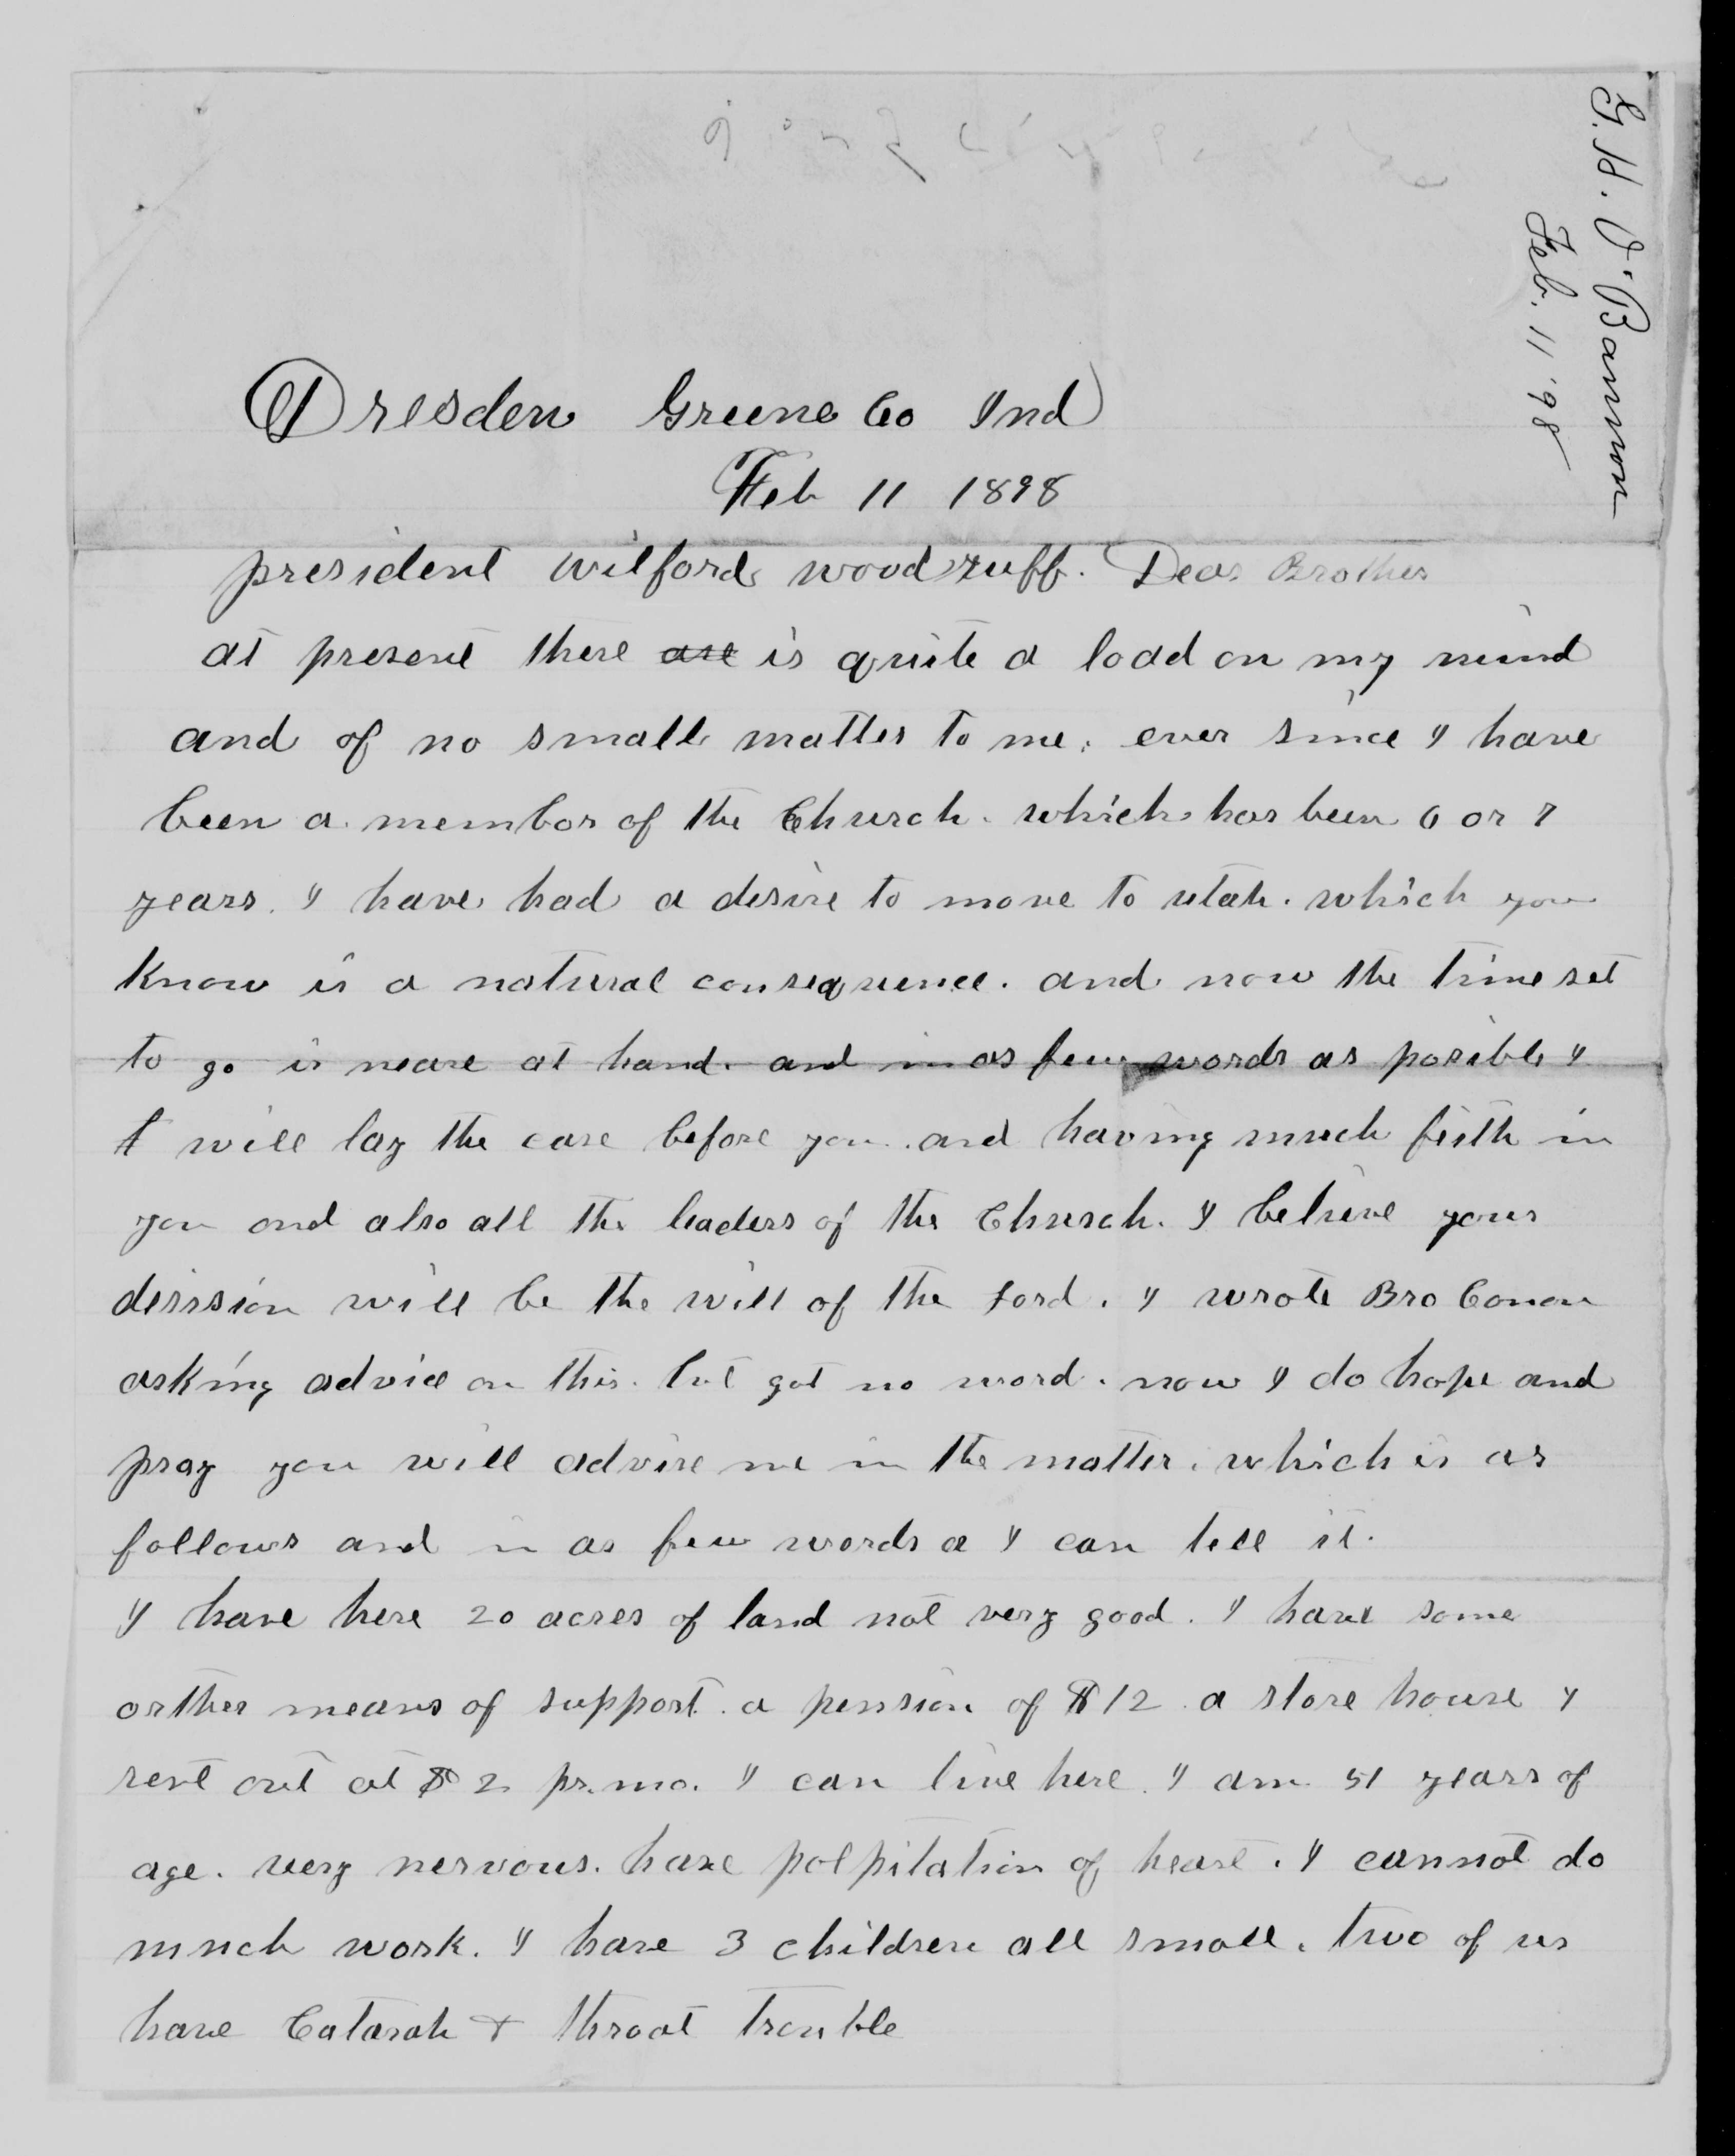 G. H. O'Bannon
Feb. 11 '98
Dresden Greene Co Ind
Feb 11 1898
president wilford woodruff. Dear Brother
at present there are is quite a load on my mind
and of no small matter to me. ever since I have
been a membor of the Church. which has been 6 or 7
years. I have had a desire to move to utah. which you
know is a natural consequence. and now the time set
to go is neare at hand. and in as few words as posible I
I will lay the case before you. and having much feith in
you and also all the leaders of the Church. I believe your
disission will be the will of the Lord. I wrote Bro Conon
asking advice on this. but got no word. now I do hope and
pray you will advise me in the matter. which is as
follows and in as few words a I can tell it.
I have here 20 acres of land not very good. I have some
orther means of support. a pension of $12 a store house I
rent out at $2 pr. mo. I can live here. I am 51 years of
age. very nervous. have polpitation of heart. I cannot do
much work. I have 3 children all small. two of us
have Catarah & throat trouble